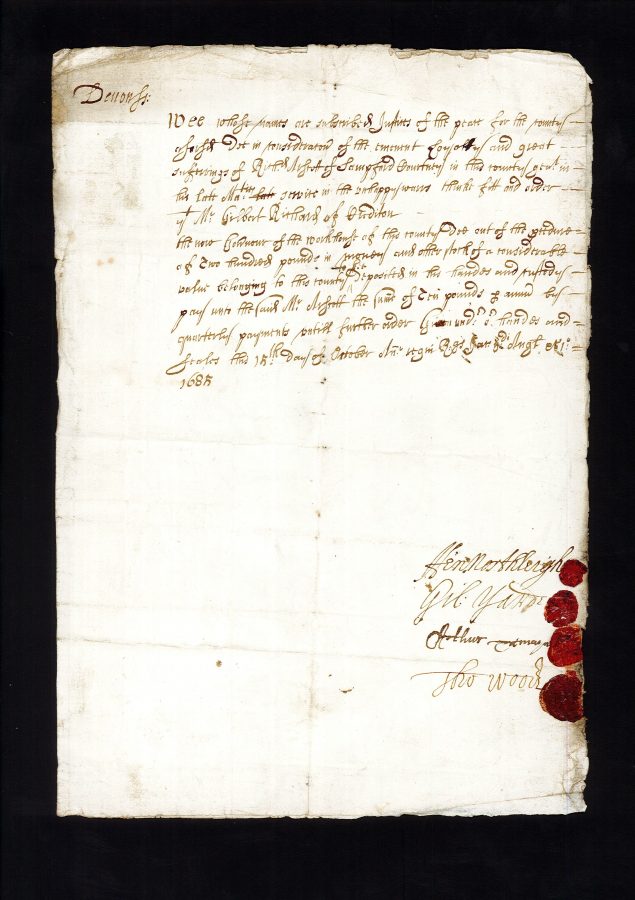 Devonss:
Wee whose names are subscribed Justices of the peace for the County
aforesd Doe in consideracon of the eminent Loyalty and great
sufferings of Richd Arscott of Sampford Courtney in this County gent in
his late Maties late service in the unhappy warrs thinke fitt and order
yt Mr Gilbert Richard of Crediton
the now Governour of the workhouse of this County Doe out of the
of Two hundred pounds in moneys and other stock of a considerable
value belonging to this County Deposited in his handes and custody
pay unto the said Mr Arscott the sume of Ten pounds p annu by
quarterly payments untill further order Given undr or handes and
seales this 15th Day of October Ano regni Rs Jac 2d Angl &c 1o
1685
Hen Northleigh
Gil: Yarde
Arthur
Tho Wood